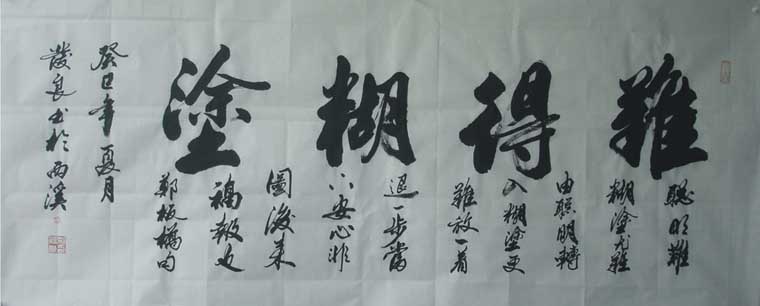 難得糊塗
聰明難
糊塗尤難
由聰明轉
入糊塗更
難放一着
退一步當
下安心非
圖後来
福報也
鄭板橋句
癸巳年夏月
發良书於西溪